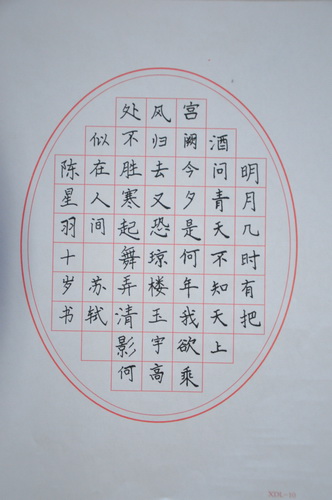 明月几时有把
酒问青天不知天上
宫阙今夕是何年我欲乘
风归去又恐琼楼玉宇高
处不胜寒起舞弄清影何
似在人间 苏轼
陈星羽十岁书